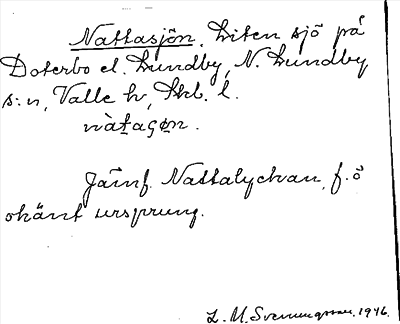 Nattasjön. Liten sjö på
Doterbo el. Lundby, N. Lundby
s:n, Valle h, Skb. l.
nàtaʃøn.
Jämf. Nattalyckan, f. ö
okänt ursprung.
L. M. Svenungsson. 1946.